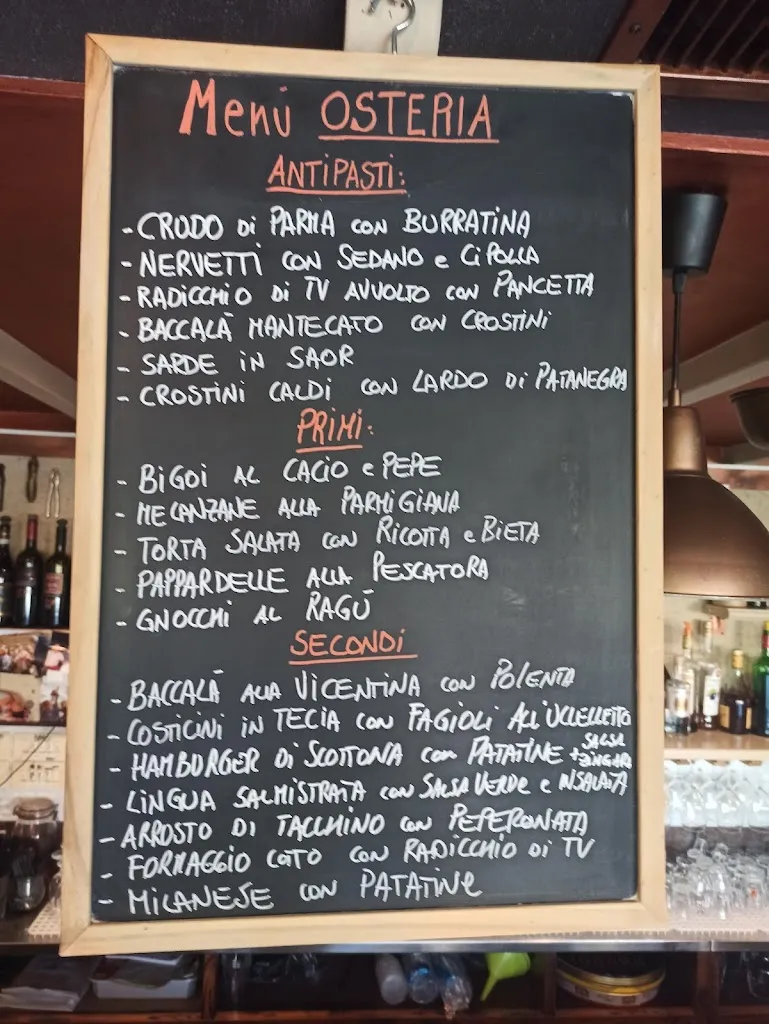 Menù OSTERIA
ANTIPASTI:
- CRUDO di PARMA con BURRATINA
- NERVETTI con SEDANO e CIPOLLA
- RADICCHIO DI TV AVVOLTO con PANCETTA
- BACCALÀ MANTECATO con CROSTINI
- SARDE IN SAOR
- CROSTINI CALDI con LARDO di PATANEGRA
PRIMI:
- BIGOI AL CACIO e PEPE
- MELANZANE ALLA PARMIGIANA
- TORTA SALATA con RICOTTA e BIETA
- PAPPARDELLE ALLA PESCATORA
- GNOCCHI AL RAGÙ
SECONDI
- BACCALÀ ALLA VICENTINA con POLENTA
- COSTICINI IN TECIA con FAGIOLI ALL'UCCELLETTO
- HAMBURGER DI SCOTTONA con PATATINE + SALSA ZINGARA
- LINGUA SALMISTRATA con SALSA VERDE e INSALATA
- ARROSTO DI TACCHINO con PEPERONATA
- FORMAGGIO COTO con RADICCHIO DI TV
- MILANESE con PATATINE